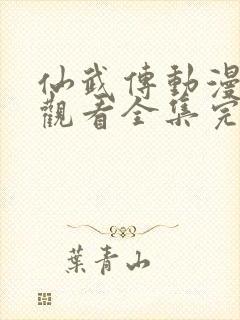 仙武傳動漫
觀看全集完
葉青山